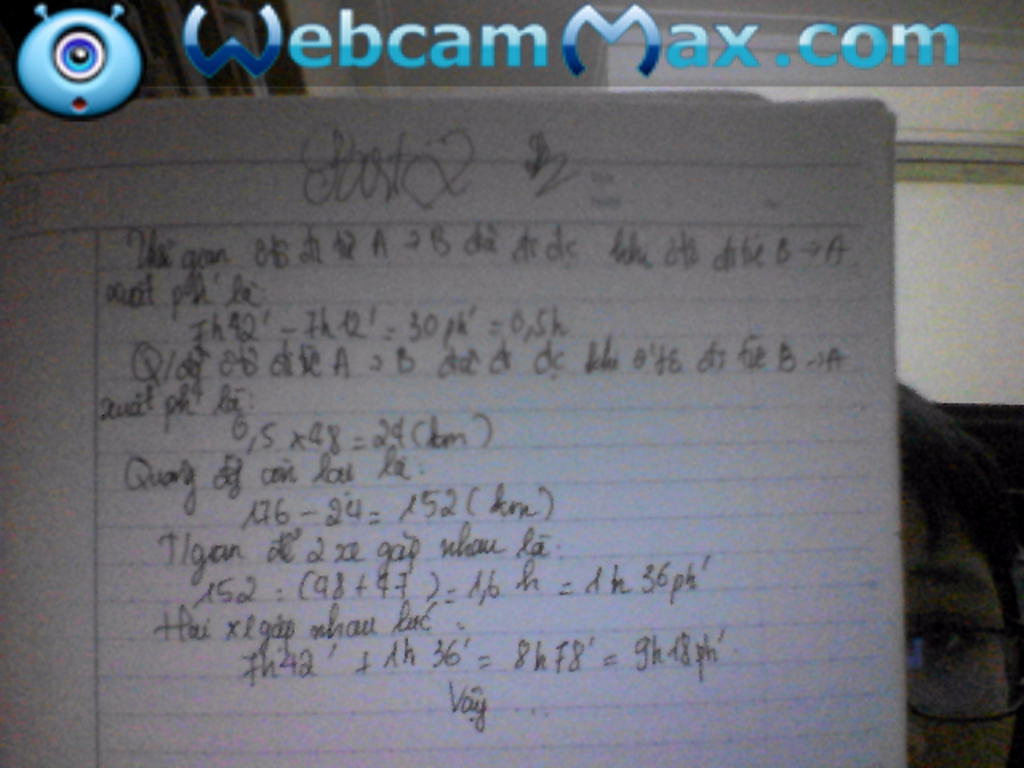 WebcamMax.com
Thời gian ôtô đi từ A → B đã đi đc khi ôtô đi từ B → A
xuất ph' là:
7h42' - 7h12' = 30 ph' = 0,5h
Q/đg ôtô đi từ A → B đã đi đc khi ôtô đi từ B → A
xuất ph' là:
0,5 x 48 = 24 (km)
Quãng đg còn lại là:
176 - 24 = 152 (km)
T/gian để 2 xe gặp nhau là:
152 : (48 + 47) = 1,6 h = 1h 36 ph'
Hai xe gặp nhau lúc:
7h42' + 1h 36' = 8h78' = 9h18ph'
Vậy ...